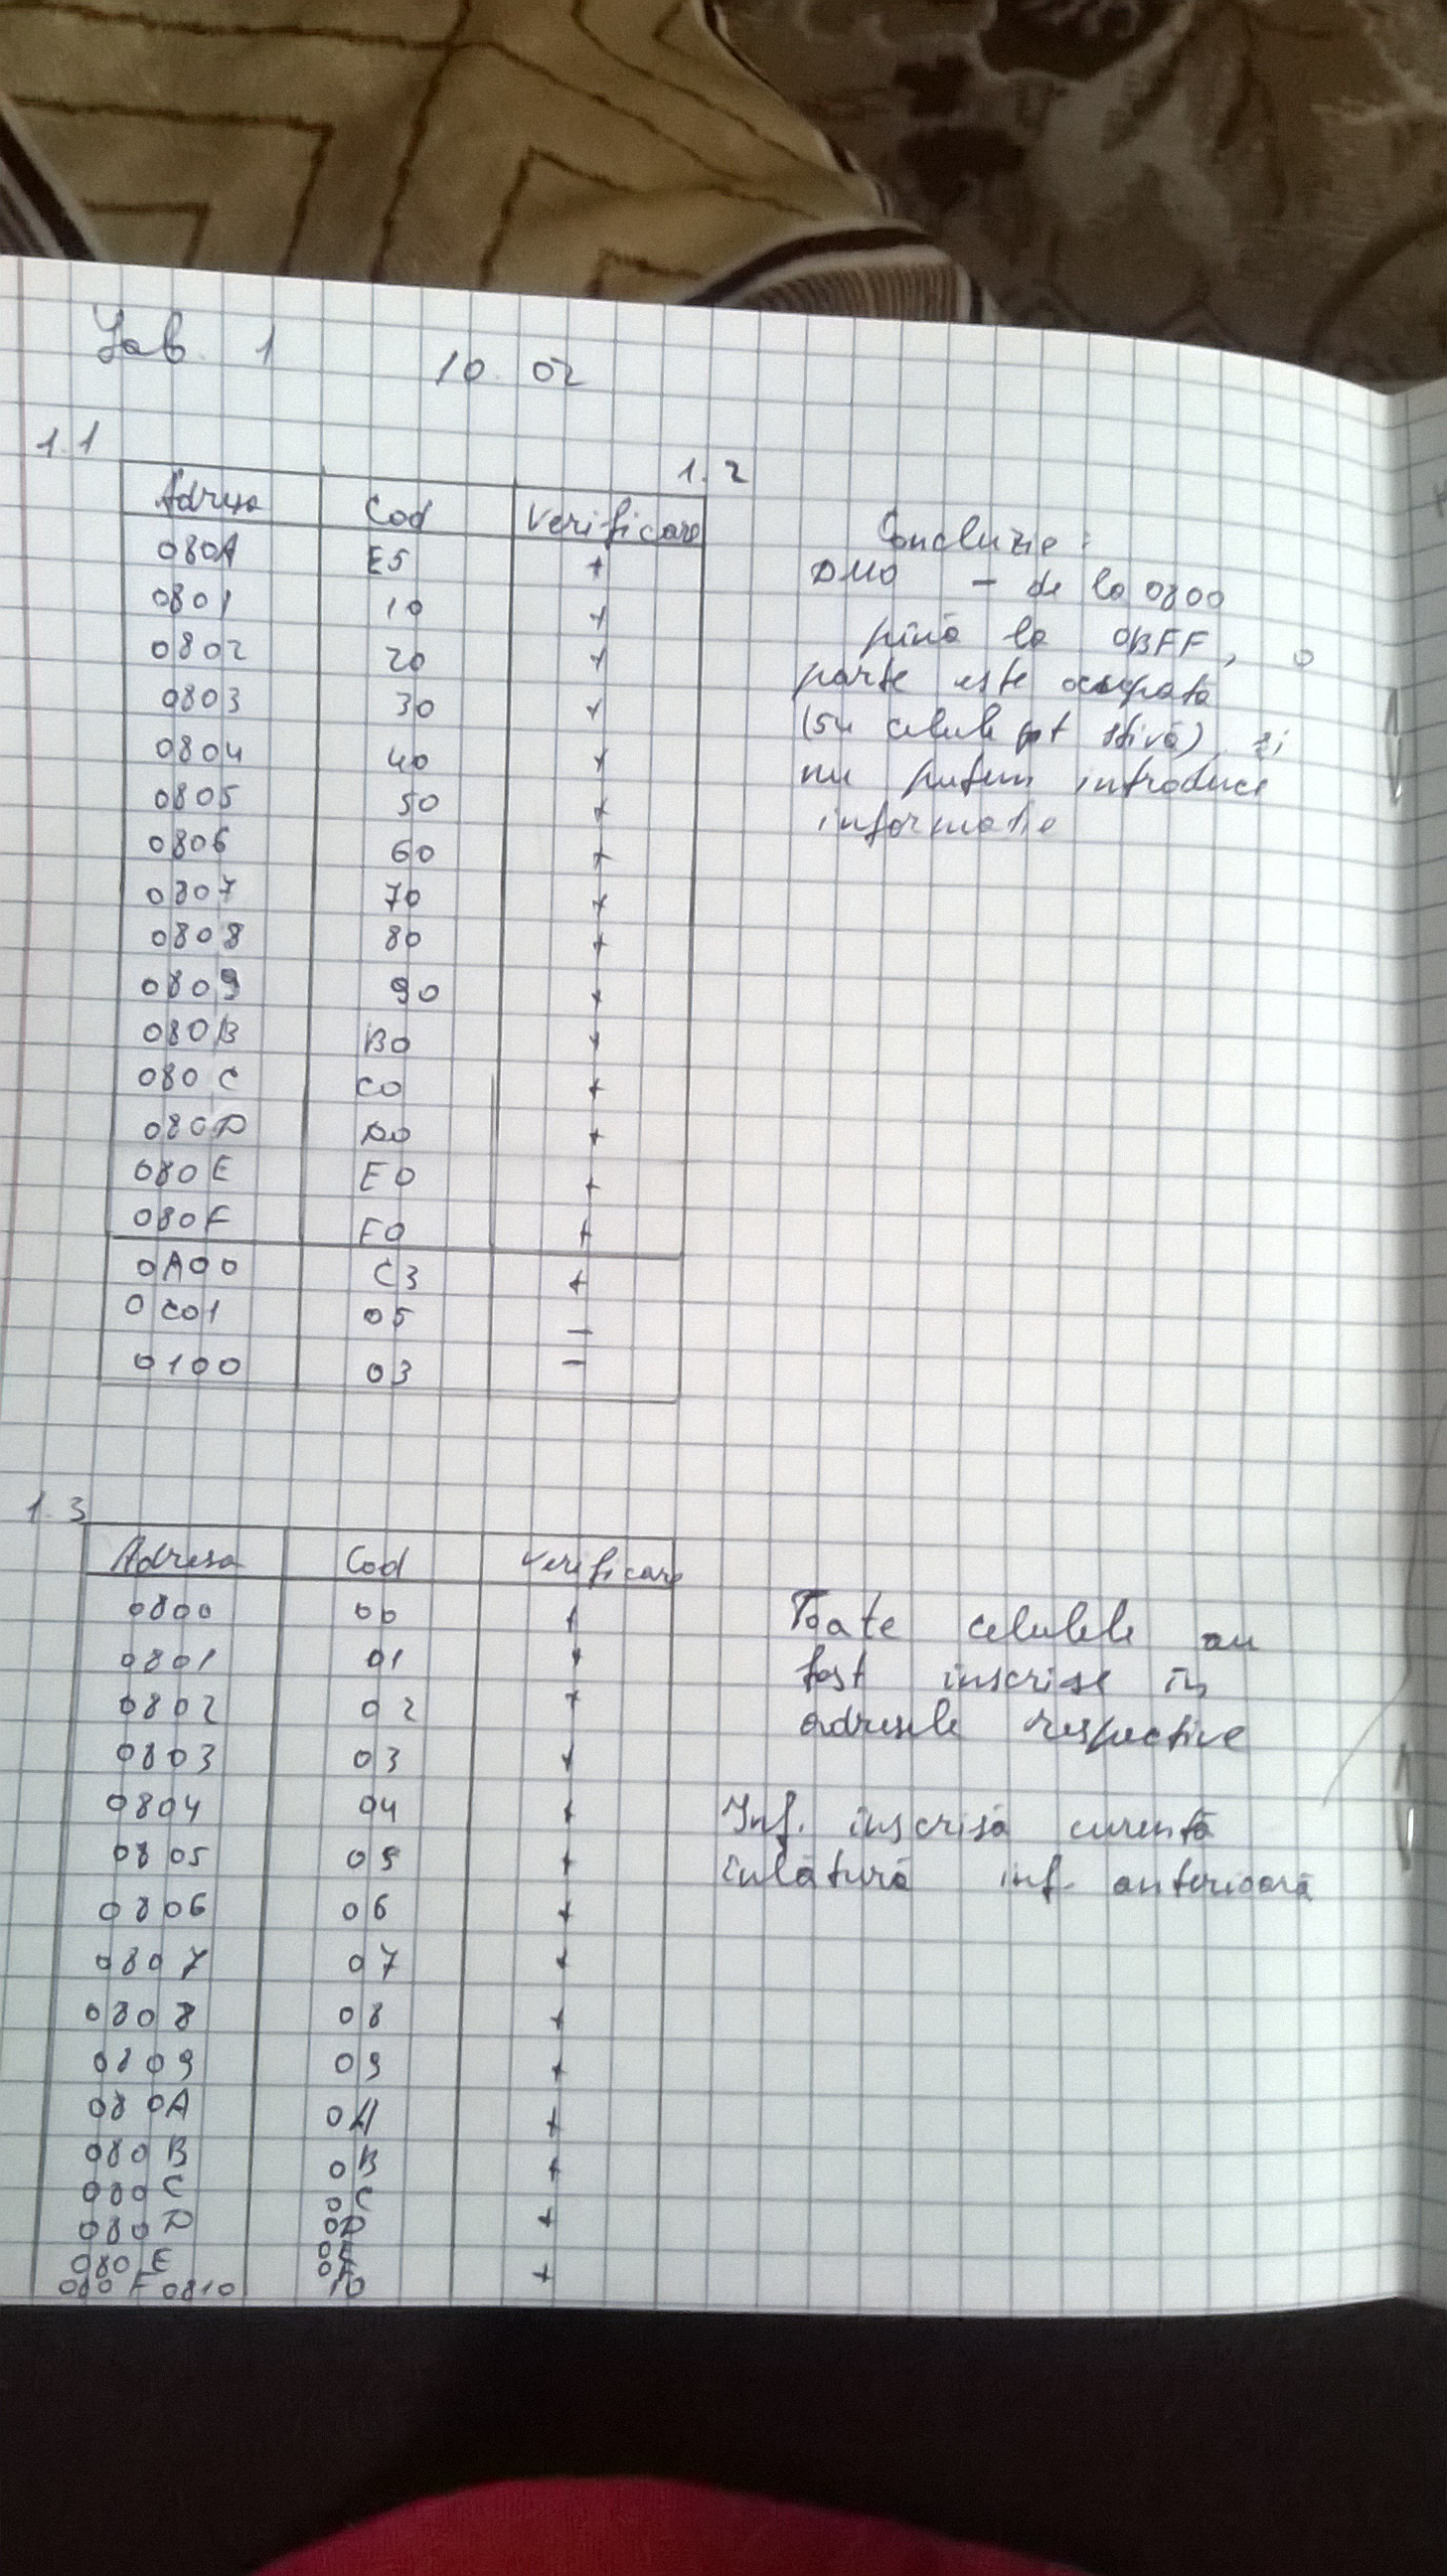 Lab. 1 10. 02
1.1
Adresa Cod Verificare
080A E5 +
0801 10 +
0802 20 +
0803 30 +
0804 40 +
0805 50 +
0806 60 +
0807 70 +
0808 80 +
0809 90 +
080B B0 +
080C C0 +
080D D0 +
080E E0 +
080F F0 +
0A00 C3 +
0C01 05 –
0100 03 –
1.2
Concluzie:
DMO – de la 0800
pină la 0BFF, o
parte este ocupată
(54 celule pt stivă), și
nu putem introduce
informatie
1.3
Adresa Cod Verificare
0800 00 +
0801 01 +
0802 02 +
0803 03 +
0804 04 +
0805 05 +
0806 06 +
0807 07 +
0808 08 +
0809 09 +
080A 0A +
080B 0B +
080C 0C
080D 0D +
080E 0E
080F 0810 0F 10 +
Toate celulele au
fost inscrise in
adresele respective
Inf. inscrisă curentă
inlătură inf. anterioară